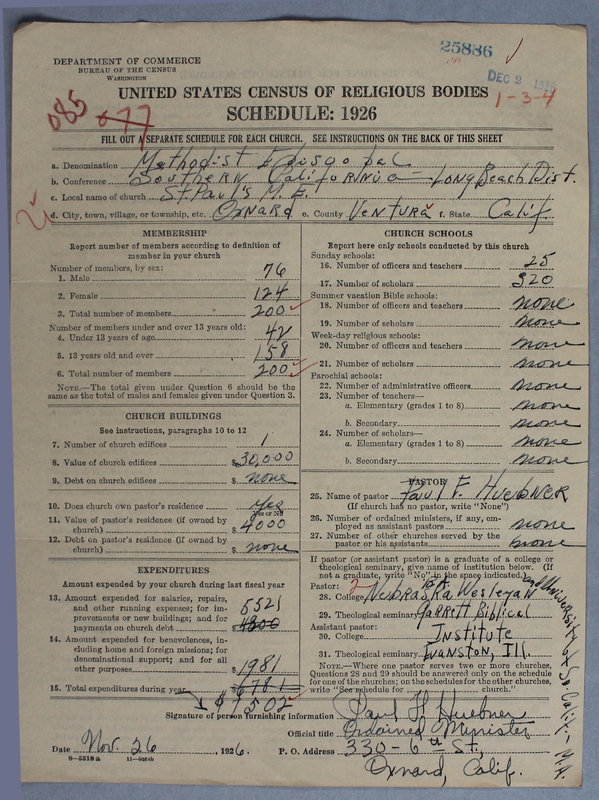 25886
DEC 2 1926
DEPARTMENT OF COMMERCE
BUREAU OF THE CENSUS
WASHINGTON
UNITED STATES CENSUS OF RELIGIOUS BODIES
1-3-4
SCHEDULE: 1926
085
077
FILL OUT A SEPARATE SCHEDULE FOR EACH CHURCH. SEE INSTRUCTIONS ON THE BACK OF THIS SHEET
a. Denomination Methodist Episcopal
b. Conference Southern California - Long Beach Dist.
c. Local name of church St. Paul's M. E.
d. City, town, village, or township, etc. Oxnard e. County Ventura f. State Calif
MEMBERSHIP
Report number of members according to definition of
member in your church
Number of members, by sex:
1. Male 76
2. Female 124
3. Total number of members 200
Number of members under and over 13 years old:
4. Under 13 years of age 42
5. 13 years old and over 158
6. Total number of members 200
NOTE.—The total given under Question 6 should be the
same as the total of males and females given under Question 3.
CHURCH BUILDINGS
See instructions, paragraphs 10 to 12
7. Number of church edifices 1
8. Value of church edifices $30,000
9. Debt on church edifices $ none
10. Does church own pastor's residence Yes
Yes or No
11. Value of pastor's residence (if owned by
church) $ 4000
12. Debt on pastor's residence (if owned by
church) $ none
EXPENDITURES
Amount expended by your church during last fiscal year
13. Amount expended for salaries, repairs,
and other running expenses; for im-
provements or new buildings; and for
payments on church debt 5521
$ 4800
14. Amount expended for benevolences, in-
cluding home and foreign missions; for
denominational support; and for all
other purposes $ 1981
15. Total expenditures during year $ 6781
$7502
CHURCH SCHOOLS
Report here only schools conducted by this church
Sunday schools:
16. Number of officers and teachers 25
17. Number of scholars 320
Summer vacation Bible schools:
18. Number of officers and teachers none
19. Number of scholars none
Week-day religious schools:
20. Number of officers and teachers none
21. Number of scholars none
Parochial schools:
22. Number of administrative officers none
23. Number of teachers—
a. Elementary (grades 1 to 8) none
b. Secondary none
24. Number of scholars—
a. Elementary (grades 1 to 8) none
b. Secondary none
PASTOR
25. Name of pastor Paul F. Huebner
(If church has no pastor, write "None")
26. Number of ordained ministers, if any, em-
ployed as assistant pastors none
27. Number of other churches served by the
pastor or his assistants none
If pastor (or assistant pastor) is a graduate of a college or
theological seminary, give name of institution below. (If
not a graduate, write "No" in the space indicated.)
Pastor:
28. College Nebraska Wesleyan
and University of So. Calif.
29. Theological seminary Garrett Biblical
Assistant pastor:
30. College Institute
31. Theological seminary Evanston, Ill.
NOTE.—Where one pastor serves two or more churches,
Questions 28 and 29 should be answered only on the schedule
for one of the churches; on the schedules for the other churches,
write "See schedule for church."
Signature of person furnishing information Paul F. Huebner
Official title Ordained Minister
Date Nov. 26, 1926. P. O. Address 330-6th St.,
8—5318 a
Oxnard, Calif.